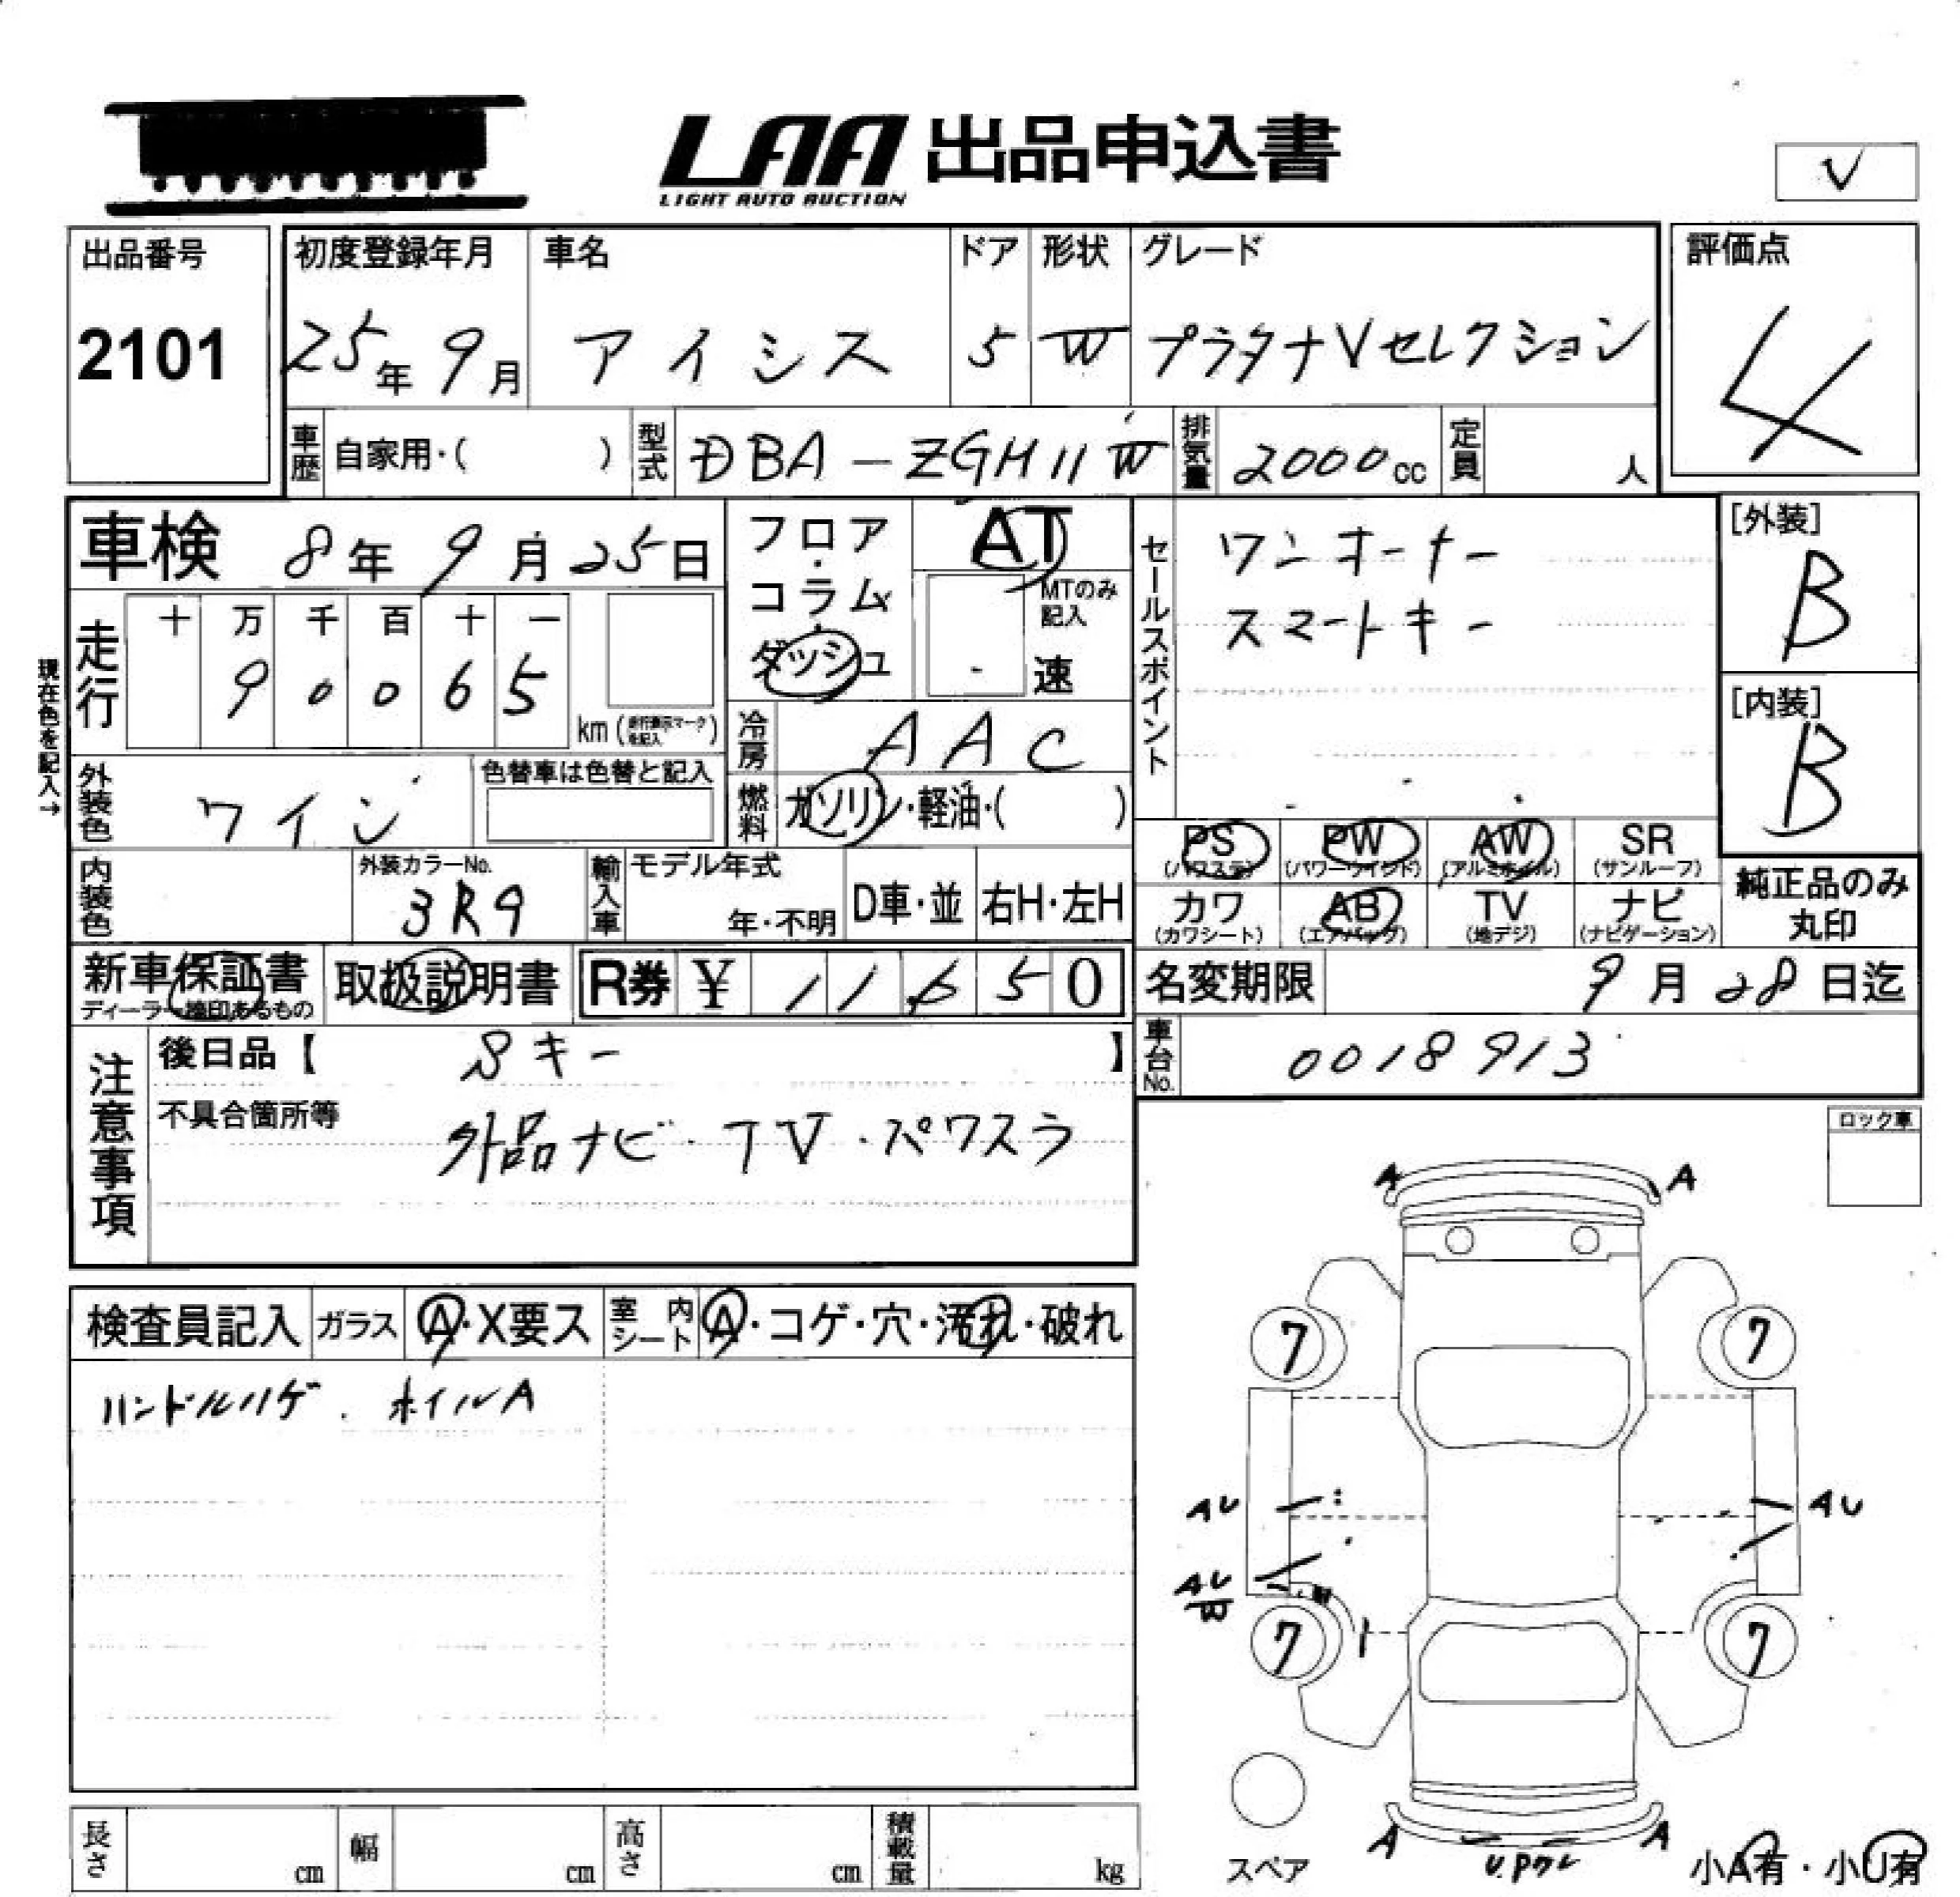 LAA 出品申込書
LIGHT AUTO AUCTION
V
出品番号
2101
初度登録年月
25年 9月
車名
アイシス
ドア
5
形状
W
グレード
プラタナVセレクション
評価点
4
車歴 自家用・( )
型式 DBA-ZGM11W
排気量 2000cc
定員 人
車検 8年 9月 25日
フロア・コラム・ダッシュ
AT
MTのみ記入
速
セールスポイント
ワンオーナー
スマートキー
[外装]
B
[内装]
B
現在色を記入→
走行
十 万 千 百 十 一
9 0 0 6 5
km (走行表示マークを記入)
冷房 AAC
外装色 ワイン
色替車は色替と記入
燃料 ガソリン・軽油・( )
PS (パワステ)
PW (パワーウインド)
AW (アルミホイル)
SR (サンルーフ)
カワ (カワシート)
AB (エアバッグ)
TV (地デジ)
ナビ (ナビゲーション)
純正品のみ丸印
内装色
外装カラーNo.
3R9
輸入車
モデル年式
年・不明
D車・並
右H・左H
新車保証書
ディーラー捺印あるもの
取扱説明書
R券 ¥ 11,650
名変期限 9月 28日迄
車台No. 0018913
注意事項
後日品【 Sキー 】
不具合箇所等
外品ナビ・TV・スペワスラ
ロック車
検査員記入
ガラス A・X要ス
室内シート A・コゲ・穴・汚れ・破れ
ハンドルハゲ. ホイルA
A A
7 7
AU AU
AU
W
7 7
スペア
A A
U.Pワレ
小A有・小U有
長さ cm
幅 cm
高さ cm
積載量 kg